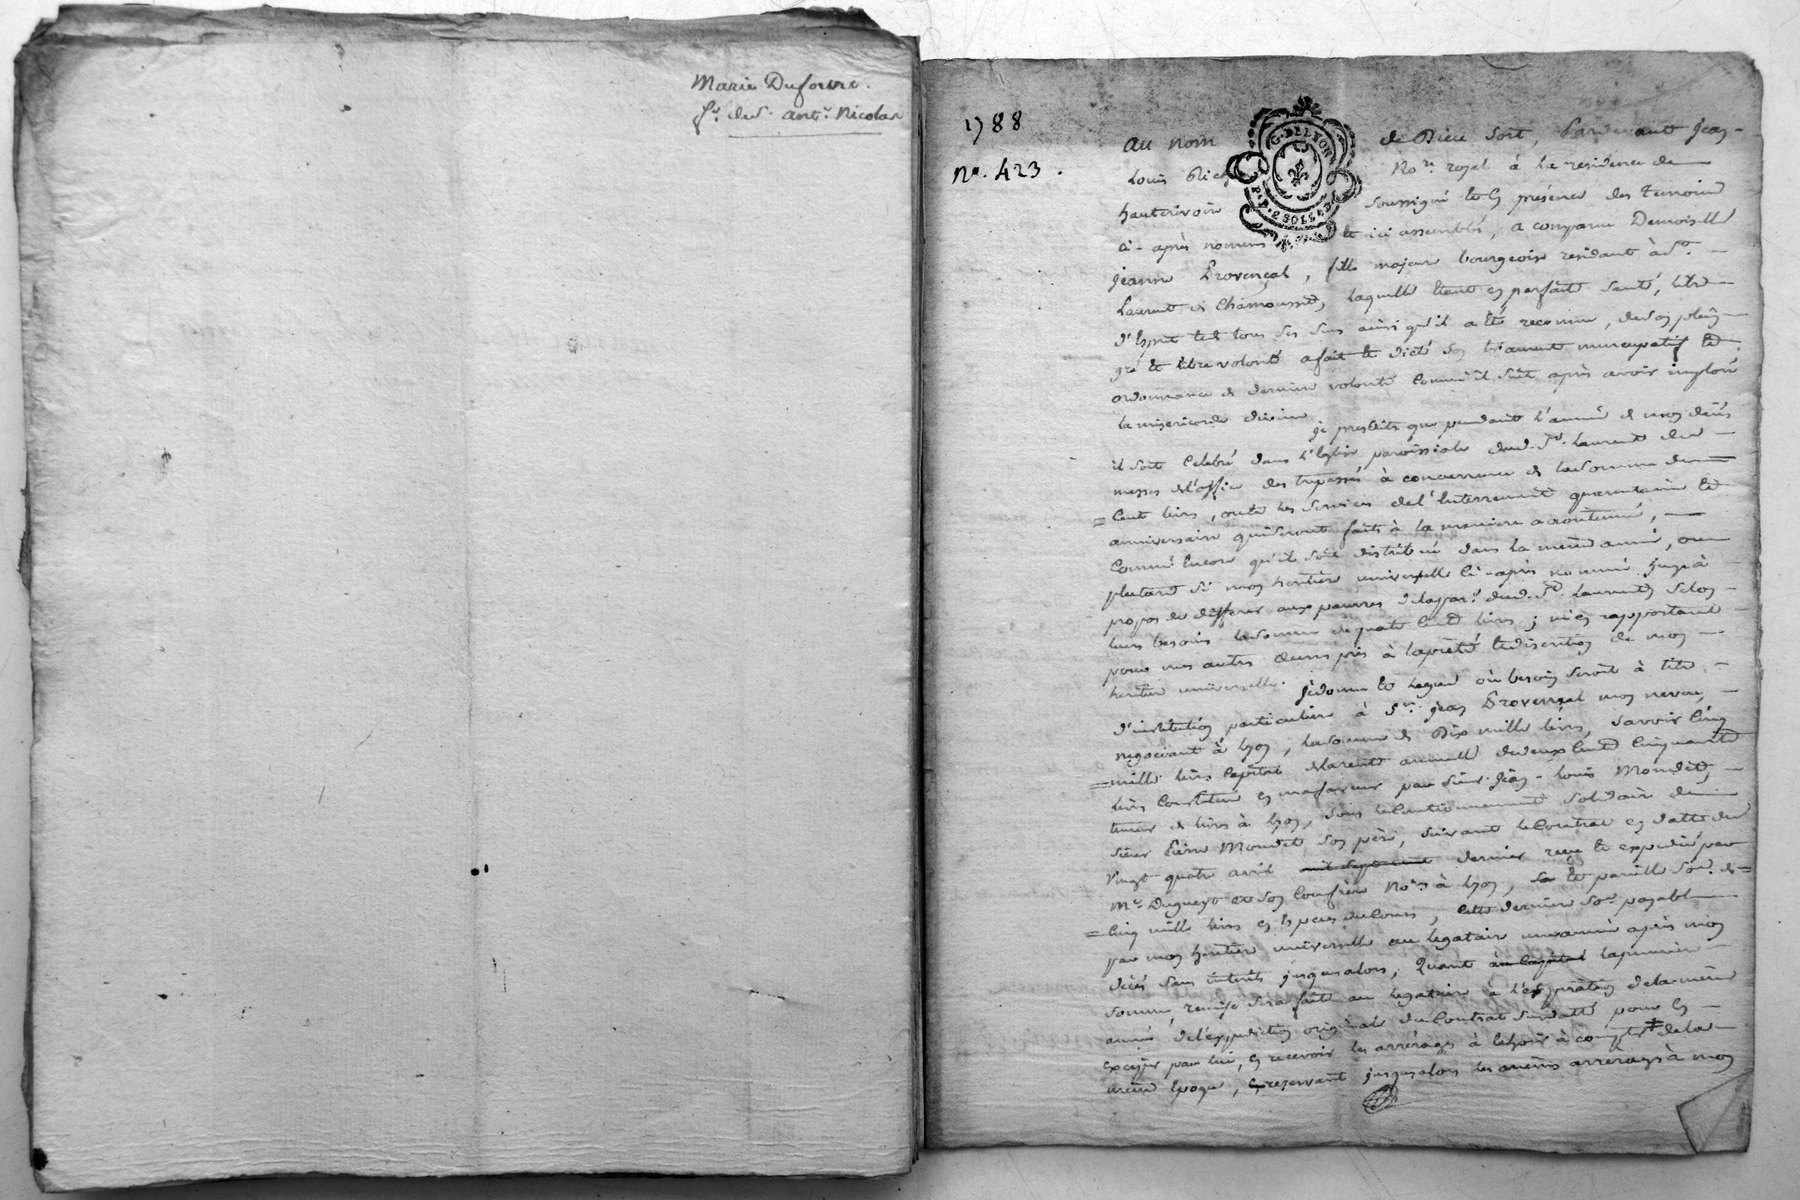 Marie Duforvre.
fe. de d. ant. Nicolas
1788
No. 423.
G. DE LYON
P. P. 2 SOLS 4 D
au nom de Dieu soit, Pardevant Jean
Louis No.re royal à la residence de
hauterivoire soussigné et en présence des temoins
ci-après nommés et ici assemblés, a comparu Demoiselle
jeanne Provençal, fille majeure bourgeoise residant à St.
Laurent de Chamousset, laquelle etant en parfaite santé, libre
d'esprit et de tous ses sens ainsi qu'il a eté reconnu, de son plein
gré et libre volonté a fait et dicté son testament nuncupatif et
ordonnance de derniere volonté comme il suit après avoir imploré
la misericorde divine. je prescrits que pendant l'année de mon décès
il soit celebré dans l'Eglise paroissiale dud. St. Laurent des
messes de l'office des trepassés à concurrence de la somme de
cent livres, outre les services de l'Enterrement quarantaine et
anniversaire qui seront faits à la maniere accoutumée,
comme encore qu'il soit distribué dans la meme année, ou
plutard si mon heritiere universelle ci-après nommée juge à
propos de differer aux pauvres de la parr. dud. St. Laurent selon
leurs besoins la somme de quatre cent livres; m'en rapportant
pour mes autres œuvres pies à la pieté et discretion de mon
heritiere universelle. je donne et legue où besoin seroit à titre
d'institution particuliere à Sr. jean Provençal mon neveu,
negociant à lyon, la somme de Dix mille livres, savoir cinq
mille livres capital de la rente annuelle de deux cent cinquante
livres constituée en ma faveur par sieur jean-Louis Mondet,
teneur de livres à lyon, sous le cautionnement solidaire de
sieur Pierre Mondet son père, suivant le contrat en datte du
vingt quatre avril dernier reçu et expedié par
Me. Dugueyt et son confrère No.res à lyon, et pareille Som. de
cinq mille livres en especes du cours, cette derniere so.e payable
par mon heritiere universelle au legataire une année après mon
décès sans interets jusqu'alors, Quant à la premiere
somme remise sera faite au legataire à l'expiration de la même
année de l'expedition originale du contrat susdatté pour en
exiger par lui, en recevoir les arrérages à echoir à compter de la
même epoque, reservant jusqu'alors les memes arrerages à mon